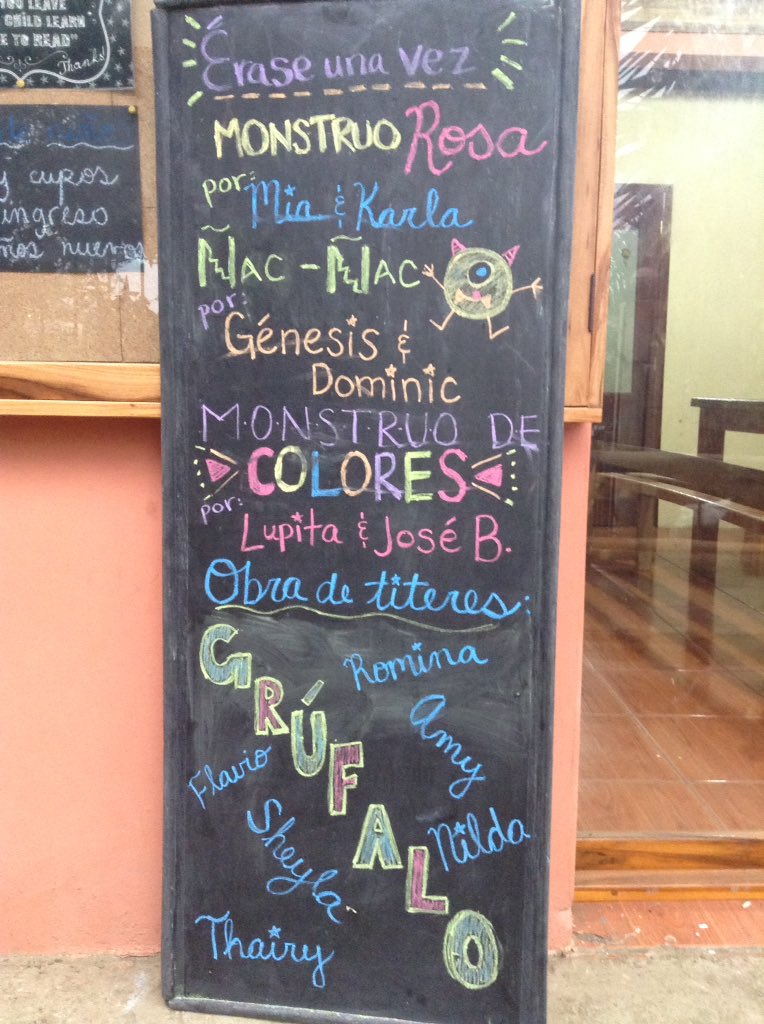 YOU LEAVE
CHILD LEARN
E TO READ"
Thanks!
y cupos
ingreso
ños nuevos
Érase una vez
MONSTRUO Rosa
por:
Mia & Karla
ÑAC-ÑAC
por:
Génesis &
Dominic
M·O·N·S·T·R·U·O DE
COLORES
por:
Lupita & José B.
Obra de titeres:
GRÚFALO
Romina
Amy
Flavio
Sheyla
Nilda
Thairy